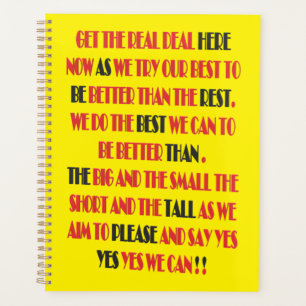 GET THE REAL DEAL HERE
NOW AS WE TRY OUR BEST TO
BE BETTER THAN THE REST.
WE DO THE BEST WE CAN TO
BE BETTER THAN .
THE BIG AND THE SMALL THE
SHORT AND THE TALL AS WE
AIM TO PLEASE AND SAY YES
YES YES WE CAN!!